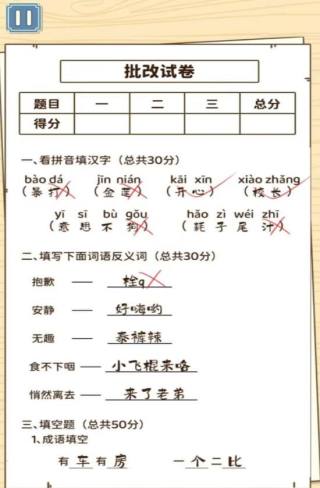 批改试卷
题目 一 二 三 总分
得分
一、看拼音填汉字（总共30分）
bào dá jīn nián kāi xīn xiào zhǎng
（暴打） （金莲） （开心） （校长）
yī sī bù gǒu hào zì wéi zhī
（意思不狗） （耗子尾汁）
二、填写下面词语反义词（总共30分）
抱歉 —— 栓q
安静 —— 好嗨哟
无趣 —— 泰裤辣
食不下咽 —— 小飞棍来咯
悄然离去 —— 来了老弟
三、填空题（总共50分）
1、成语填空
有车有房 一个二比